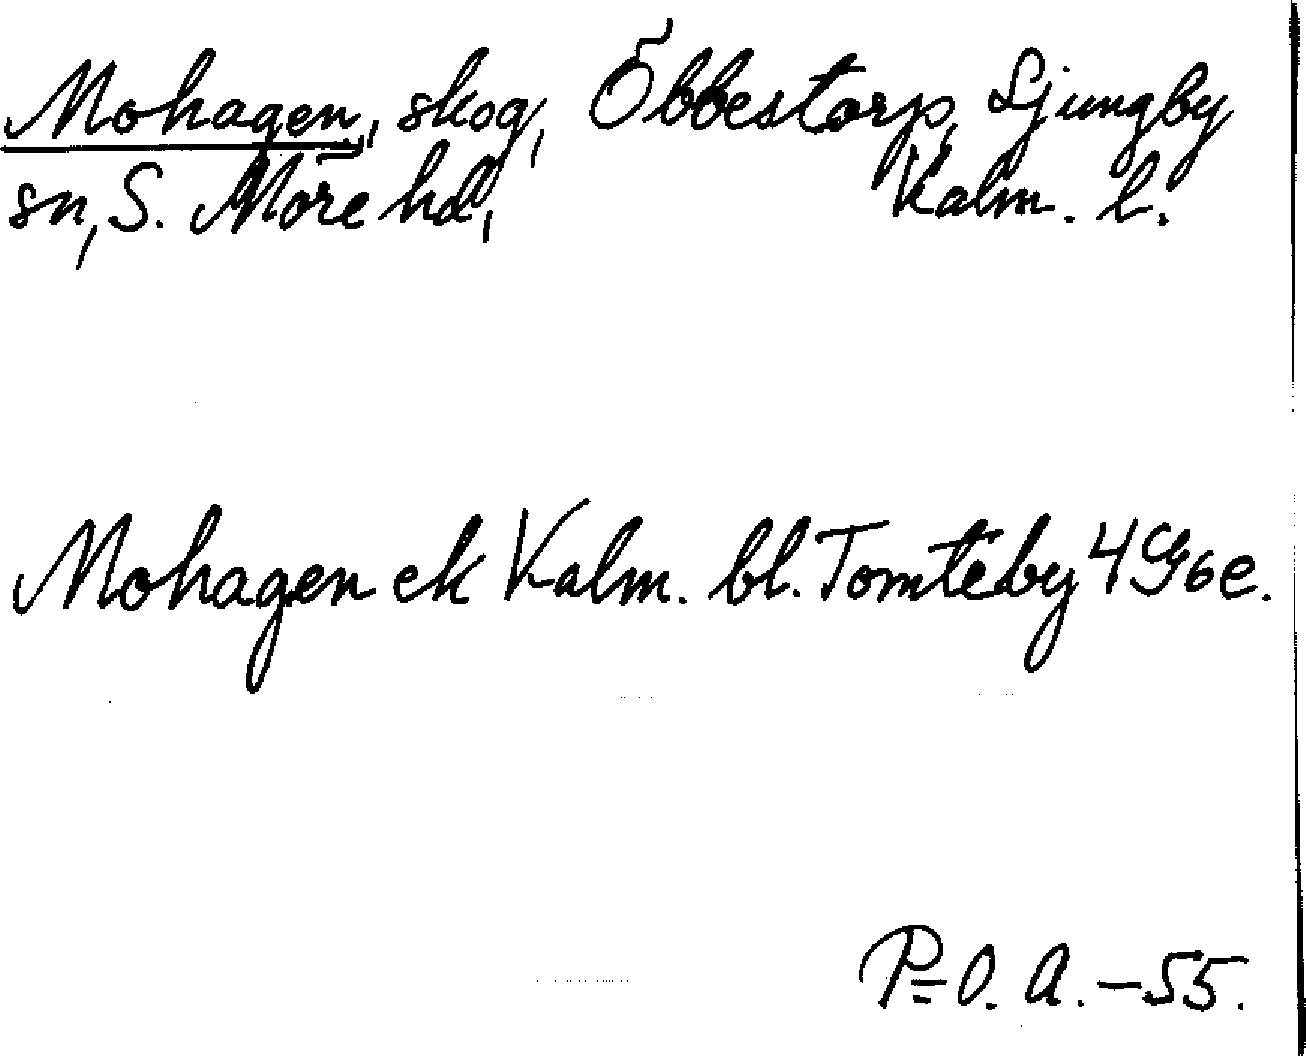 Mohagen, skog, Öbbestorp, Ljungby
sn, S. Möre hd, Kalm. l.
Mohagen ek Kalm. bl. Tomteby 4 G6e.
P=O. A. - 55.